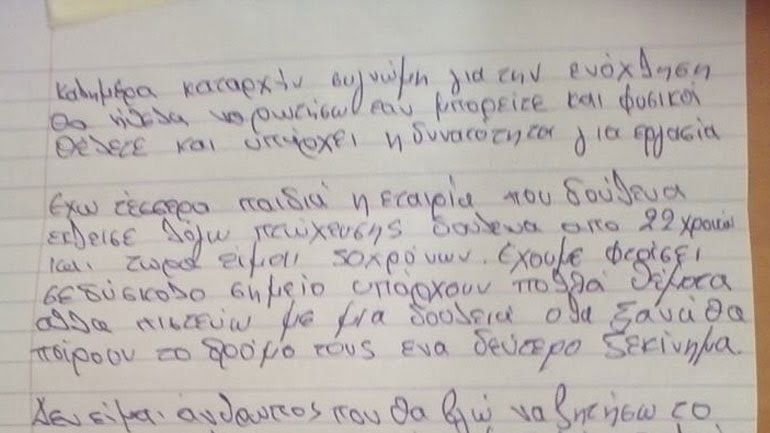 καλημέρα καταρχήν συγνώμη για την ενόχληση
θα ήθελα να ρωτήσω εαν μπορείτε και φυσικά
θέλετε και υπάρχει η δυνατότητα για εργασία
Εχω τέσσερα παιδιά η εταιρία που δούλευα
εκλεισε λόγω πτώχευσης δούλευα απο 22 χρονών
και τωρα είμαι 50χρόνων. Εχουμε φτάσει
σε δύσκολο σημείο υπάρχουν πολλά θέματα
αλλα πιστεύω με μια δουλειά ολα ξανά θα
πάρουν το δρόμο τους ενα δεύτερο ξεκίνημα.
Δεν είμαι άνθρωπος που θα βγώ να ζητήσω το